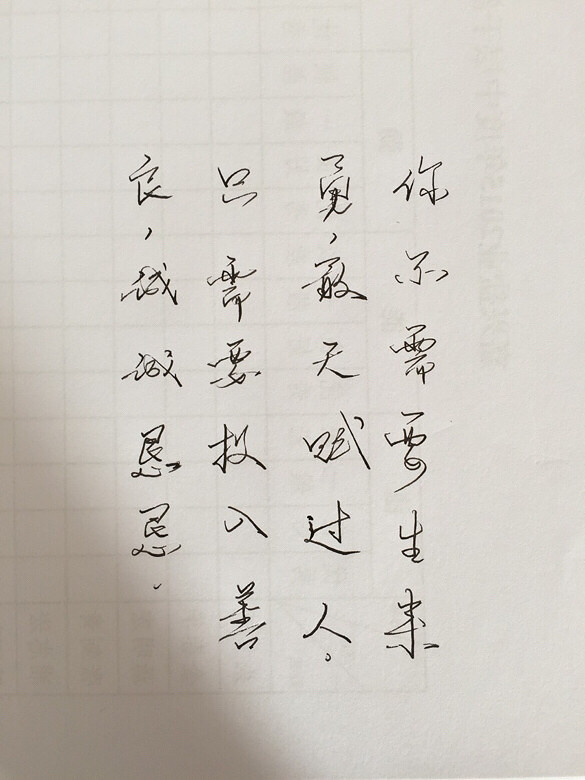 你不需要生来
勇,敢天赋过人。
只需要投入善
良,诚诚恳恳.